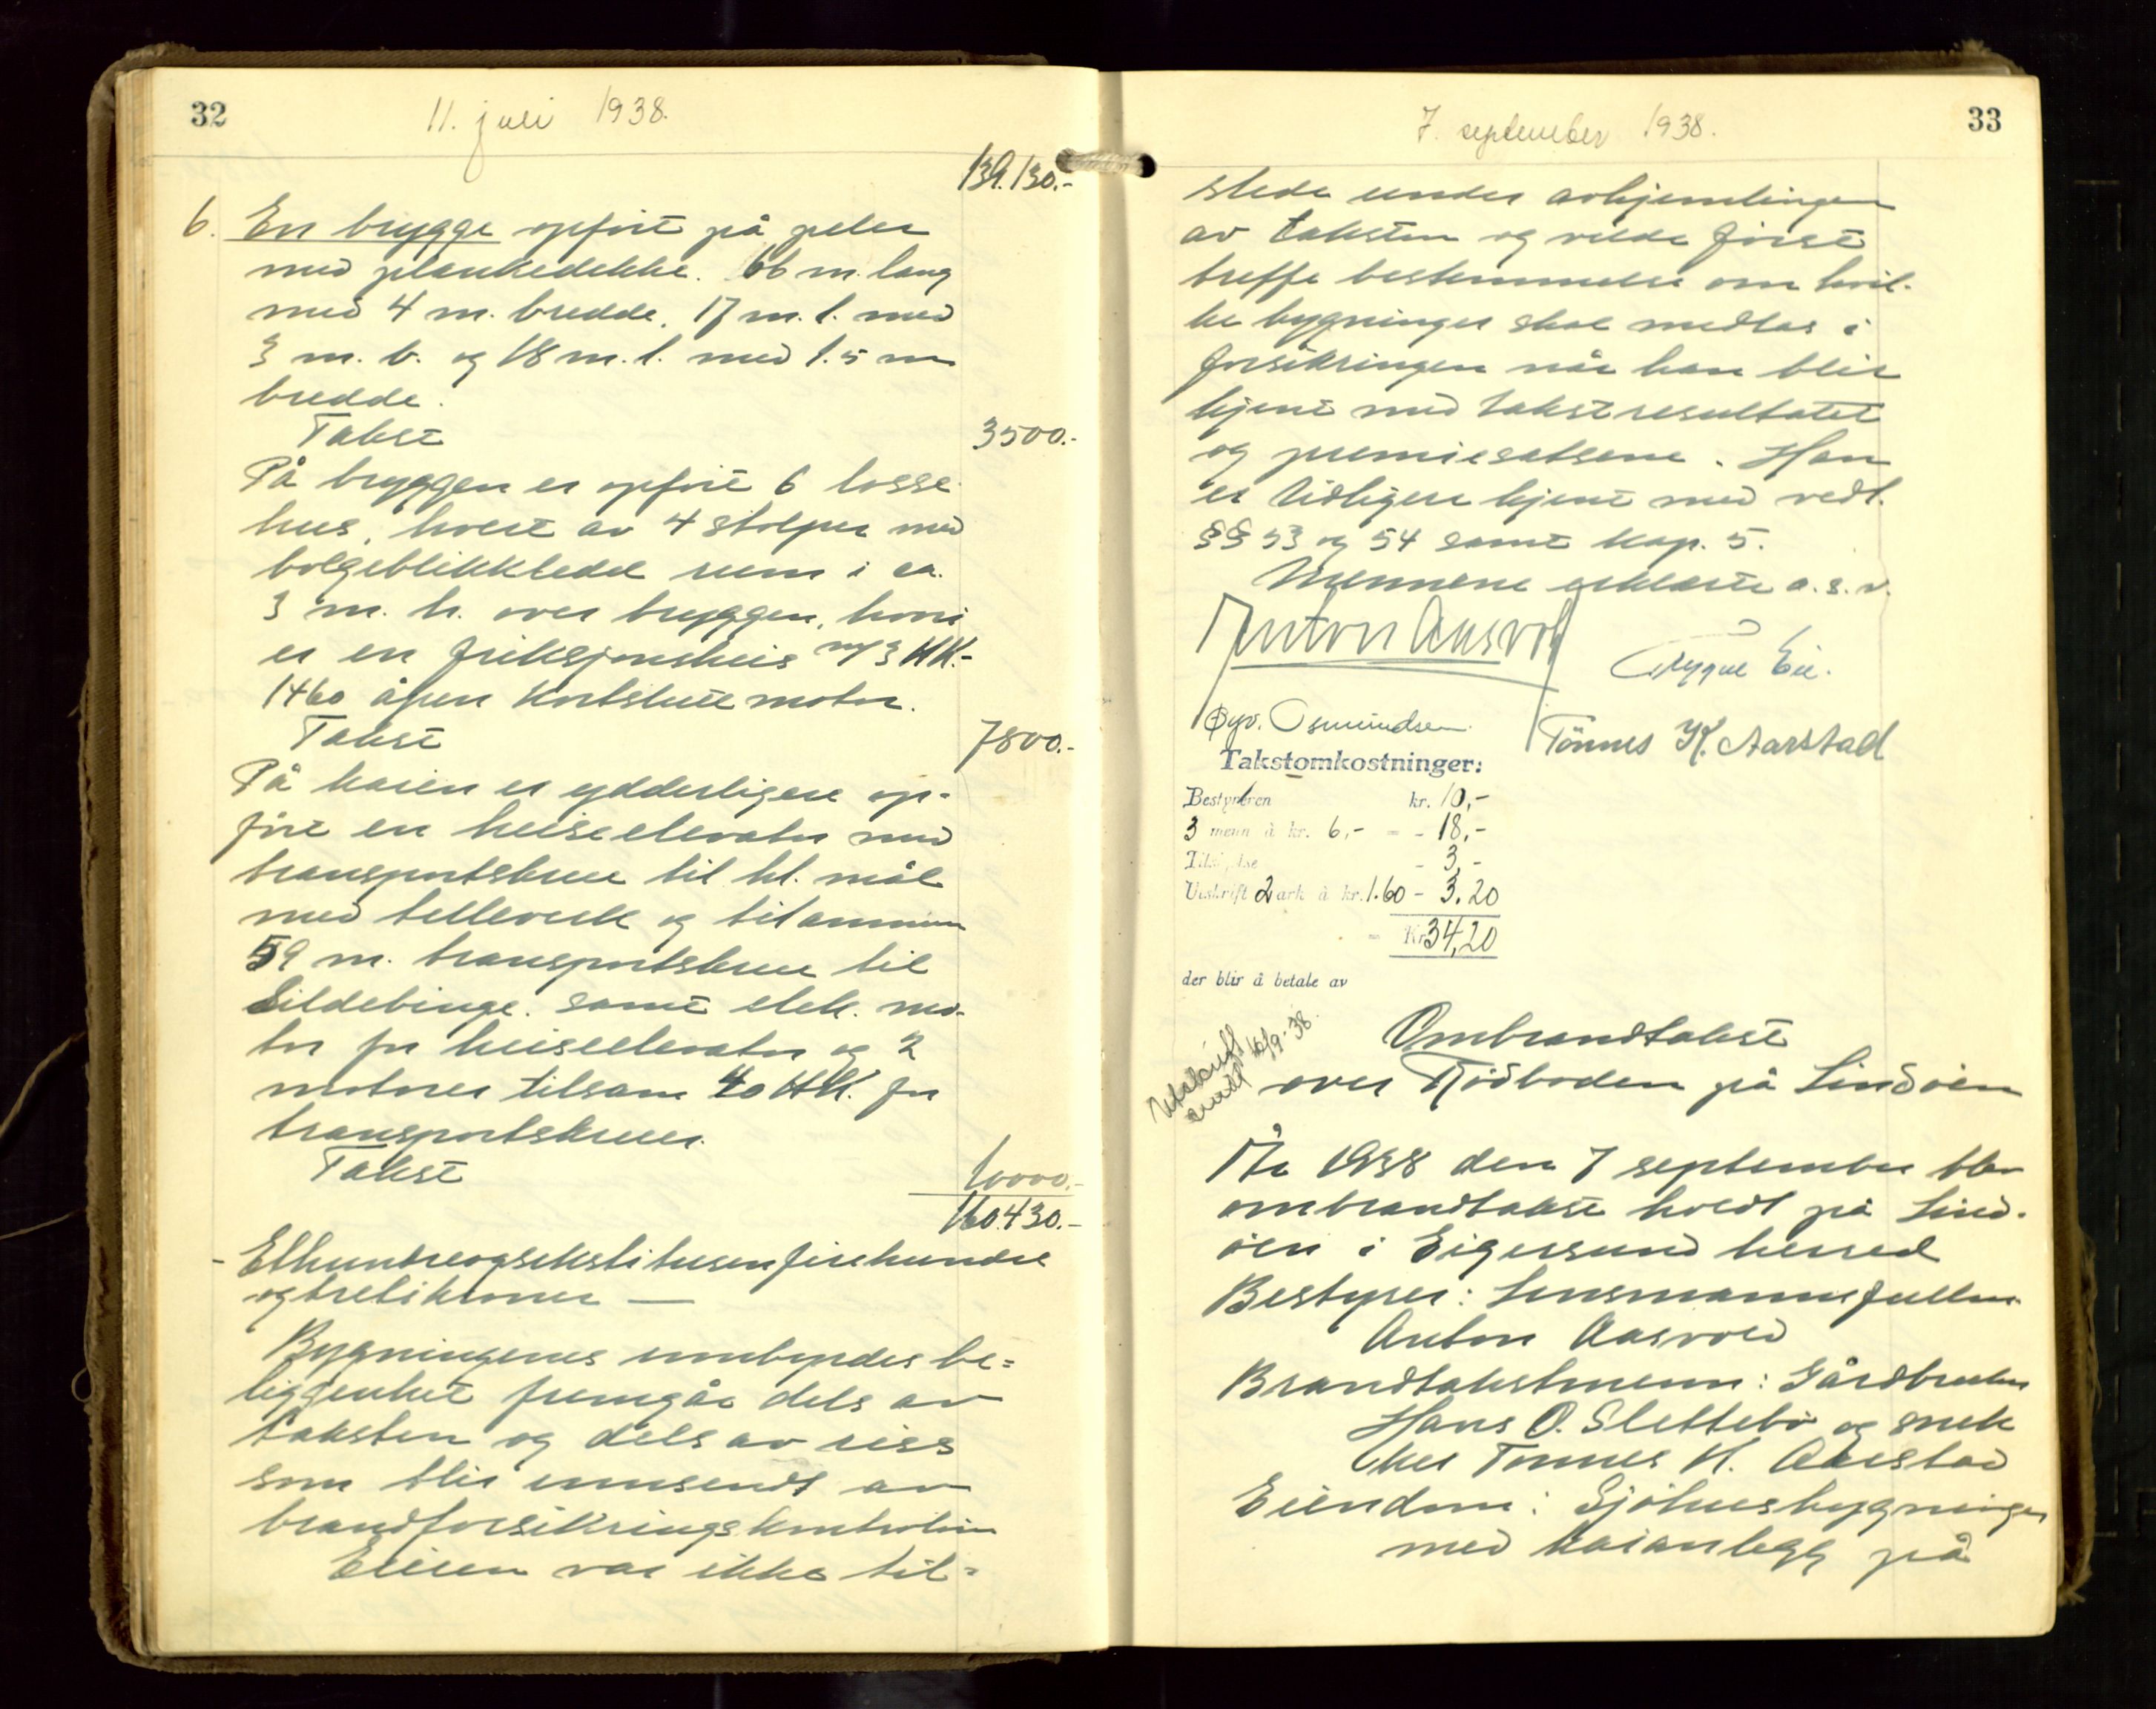 32
11. juli 1938.
139.130.-
6. En brygge opført på peler
med plankedekke. 66 m. lang
med 4 m. bredde, 17 m. l. med
3 m. b. og 18 m. l. med 1.5 m
bredde.
Takst 3500.-
På bryggen er opført 6 losse
hus, hvert av 4 stolper med
bølgeblikkledd rum i ca.
3 m. h. over bryggen, hvori
er en friksjonsheis m/ 3 HK.-
1460 åpen kortslutt motor.
Takst 7800.-
På kaien er ydderligere op-
ført en heiseelevator med
transportskrue til hl. mål
med telleverk og tilsammen
59 m. transportskrue til
Sildebinge. samt elek. mo-
tor for heiseelevator og 2
motorer tilsam 40 HK. for
transportskruer.
Takst 10000.-
160.430.-
- Etthundreogsekstitusenfirehundre
ogtretikroner —
Bygningenes innbyrdes be-
liggenhet fremgår dels av
taksten og dels av riss
som blir innsendt av
brandforsikringskontrolen
Eieren var ikke til-
33
7. september 1938.
stede under avhjemlingen
av taksten og vilde først
treffe bestemmelse om hvil-
ke bygninger skal medtas i
forsikringen når han blir
kjent med takstresultatet
og premiesatsene. Han
er tidligere kjent med vedt.
§§ 53 og 54 samt kap. 5.
Mennene erklærte o.s.v.
Anton Aasvold
Trygve Eie.
Øyv. Osmundsen
Tönnes K. Aarstad
Takstomkostninger:
Bestyreren kr. 10,-
3 menn à kr. 6,- = - 18,-
- 3,-
Utskrift 2 ark à kr. 1.60 - 3.20
= Kr. 34,20
der blir å betale av
Utskrift
sendt 16/9-38.
Ombrandtakst
over Rødboden på Lindøen
År 1938 den 7 september blev
ombrandtakst holdt på Lind-
øen i Eigersund herred
Bestyrer: Lensmannsfullm.
Anton Aasvold
Brandtakstmenn: Gårdbruker
Hans O. Slettebø og snek
ker Tønnes K. Aarstad
Eiendom: Sjøhusbygninger
med kaianlegg på